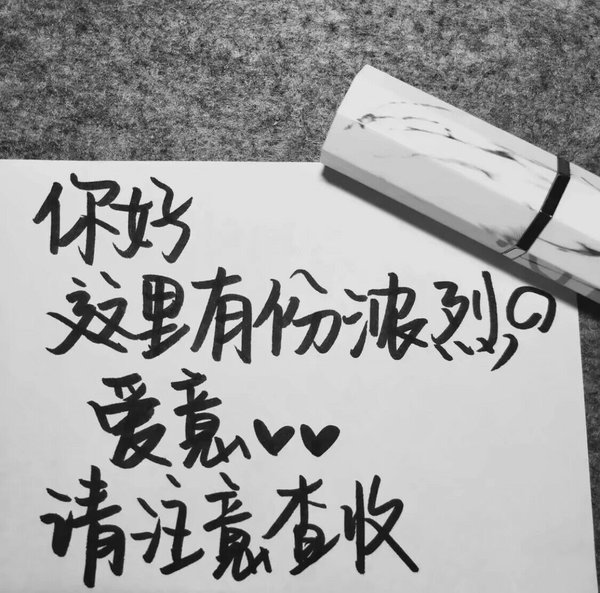 你好
这里有份浓烈の
爱意♥♥
请注意查收